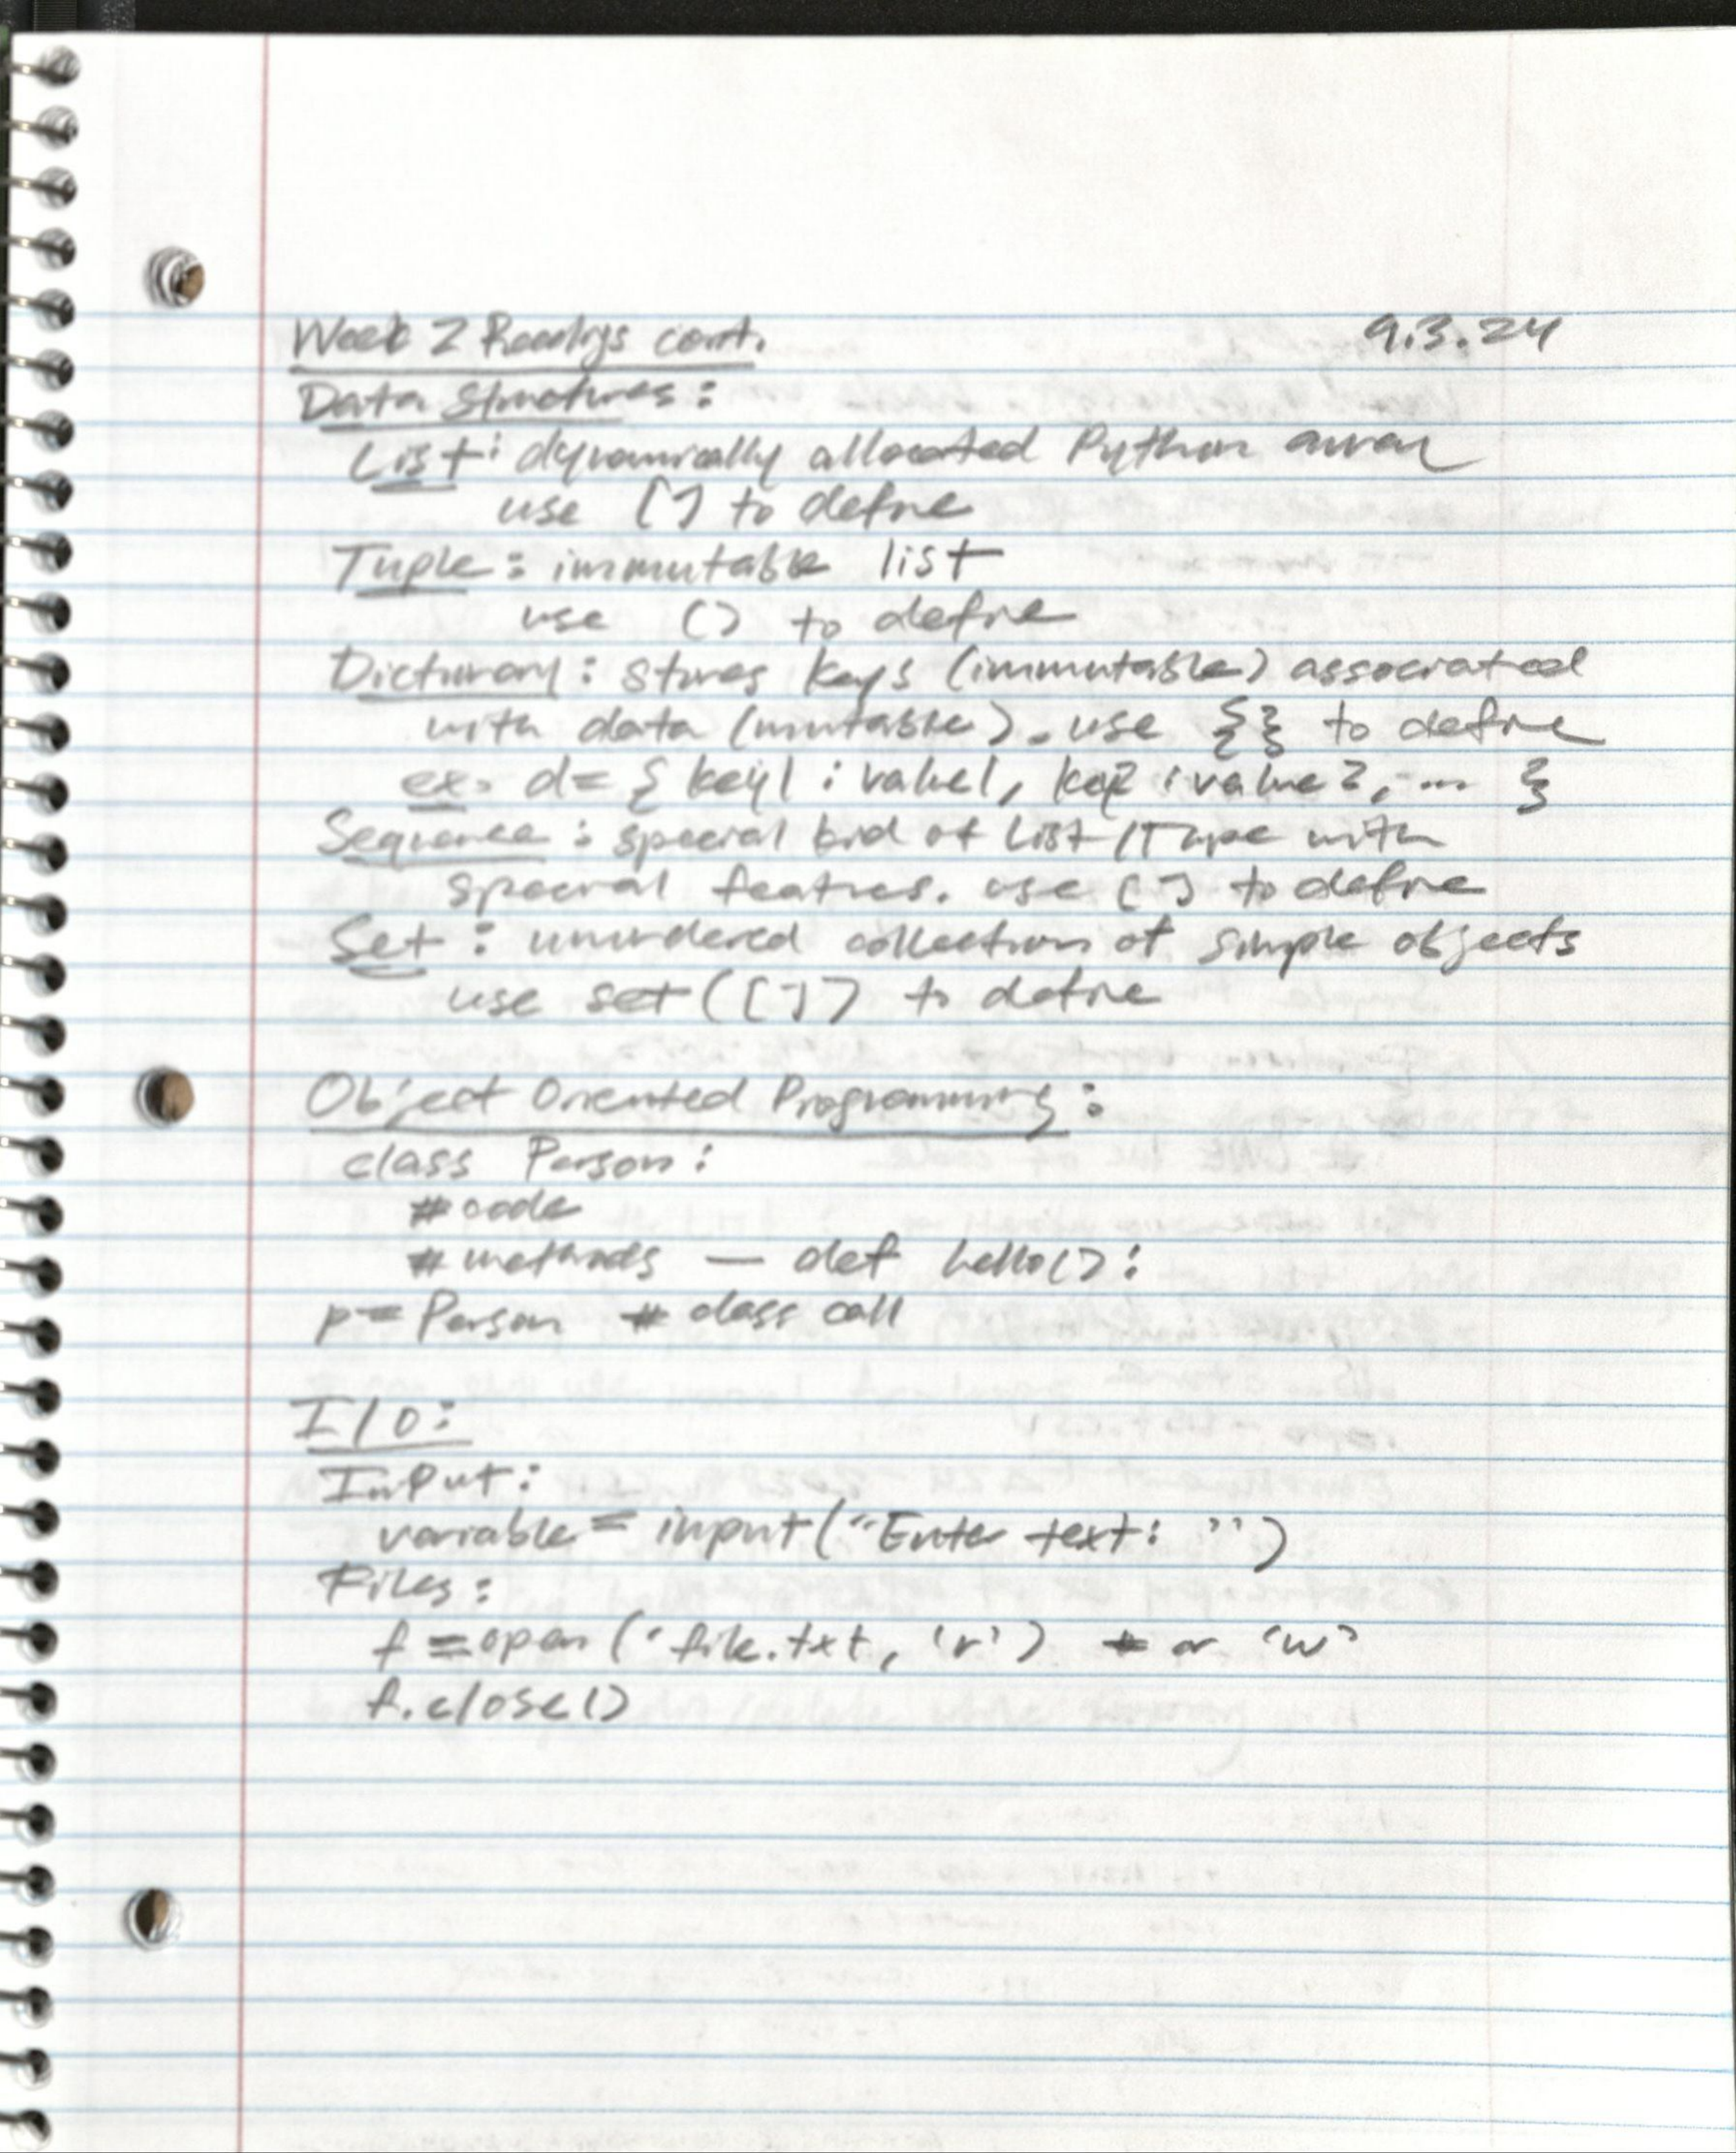 Week 2 Readings cont. 9.3.24
Data Structures:
List: dynamically allocated Python array
use [] to define
Tuple: immutable list
use () to define
Dictionary: stores keys (immutable) associated
with data (mutable). use {} to define
ex. d= { key1 : value1, key2 : value2, ... }
Sequence: special kind of List/Tuple with
special features. use [] to define
Set: unordered collection of simple objects
use set([]) to define
Object Oriented Programming:
class Person:
#code
# methods — def hello():
p= Person # class call
I/O:
Input:
variable = input("Enter text: ")
Files:
f = open('file.txt, 'r') # or 'w'
f.close()